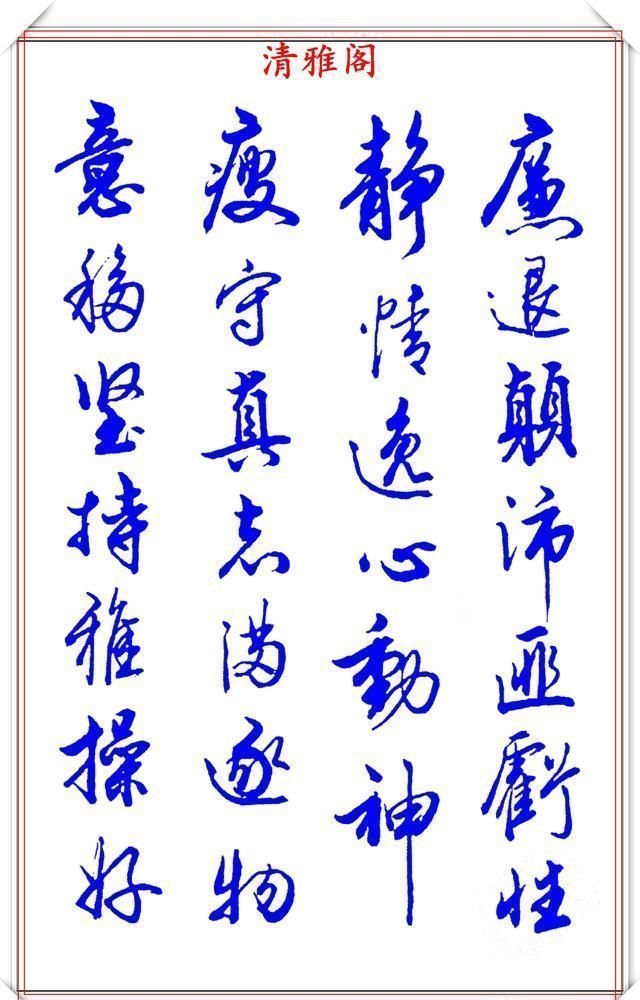 清雅阁
廉退顛沛匪虧性
靜情逸心動神
疲守真志滿逐物
意移堅持雅操好